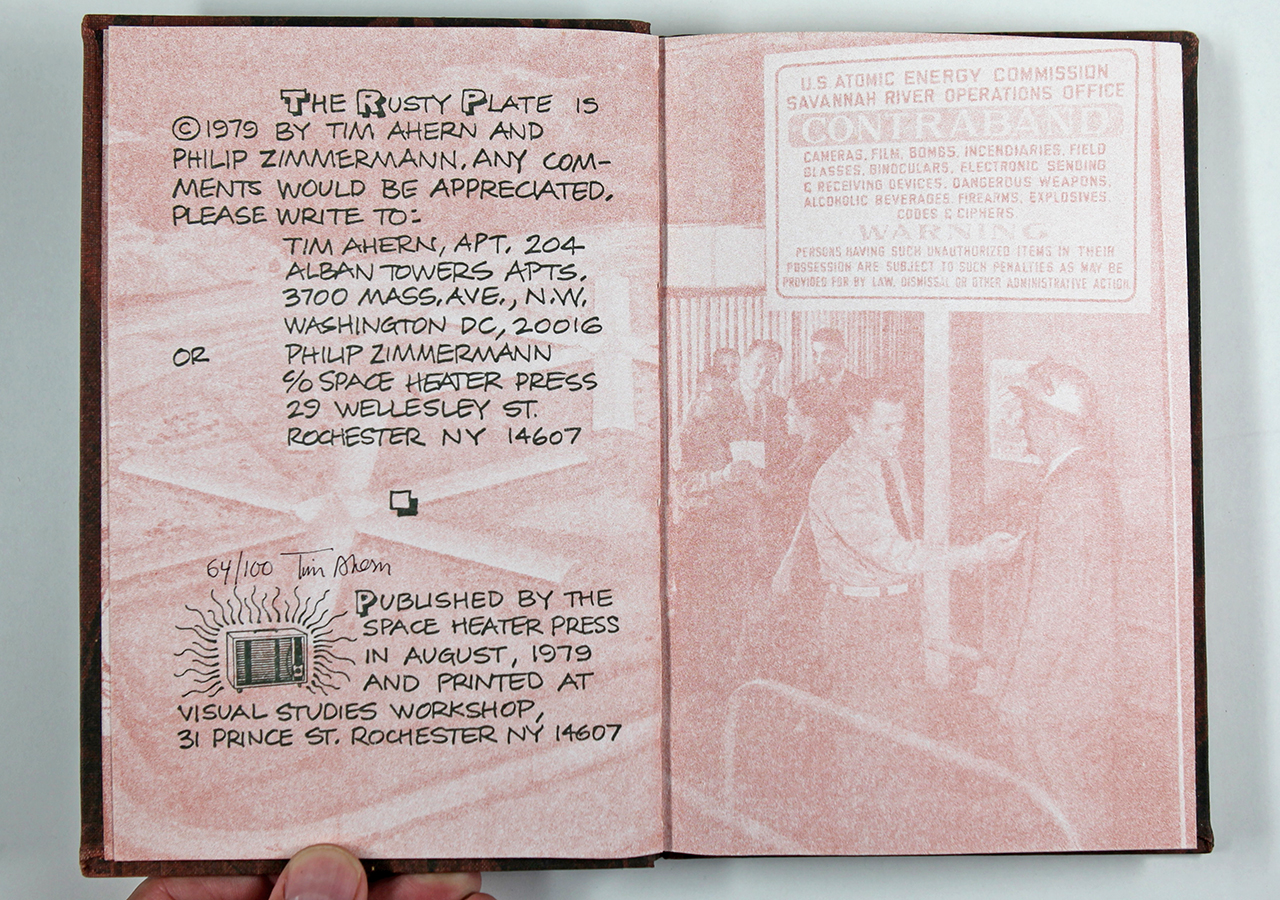 THE RUSTY PLATE IS
©1979 BY TIM AHERN AND
PHILIP ZIMMERMANN. ANY COM-
MENTS WOULD BE APPRECIATED.
PLEASE WRITE TO:
TIM AHERN, APT. 204
ALBAN TOWERS APTS.
3700 MASS. AVE., N.W.
WASHINGTON DC, 20016
OR PHILIP ZIMMERMANN
c/o SPACE HEATER PRESS
29 WELLESLEY ST.
ROCHESTER NY 14607
64/100 Tim Ahern
PUBLISHED BY THE
SPACE HEATER PRESS
IN AUGUST, 1979
AND PRINTED AT
VISUAL STUDIES WORKSHOP,
31 PRINCE ST. ROCHESTER NY 14607
U.S. ATOMIC ENERGY COMMISSION
SAVANNAH RIVER OPERATIONS OFFICE
CONTRABAND
CAMERAS, FILM, BOMBS, INCENDIARIES, FIELD
GLASSES, BINOCULARS, ELECTRONIC SENDING
& RECEIVING DEVICES, DANGEROUS WEAPONS,
ALCOHOLIC BEVERAGES, FIREARMS, EXPLOSIVES,
CODES & CIPHERS
WARNING
PERSONS HAVING SUCH UNAUTHORIZED ITEMS IN THEIR
POSSESSION ARE SUBJECT TO SUCH PENALTIES AS MAY BE
PROVIDED FOR BY LAW, DISMISSAL OR OTHER ADMINISTRATIVE ACTION